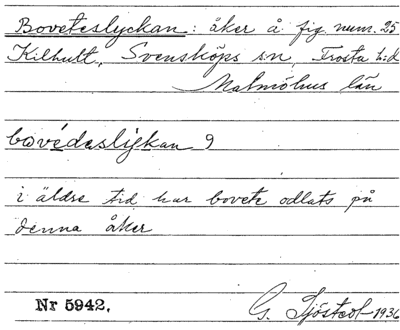 Boveteslyckan: åker å fig. num. 25
Kilhult, Svensköps sn, Frosta hd
Malmöhus län
bovédaslykan 9
i äldre tid har bovete odlats på
denna åker
Nr 5942.
G. Sjöstedt 1936